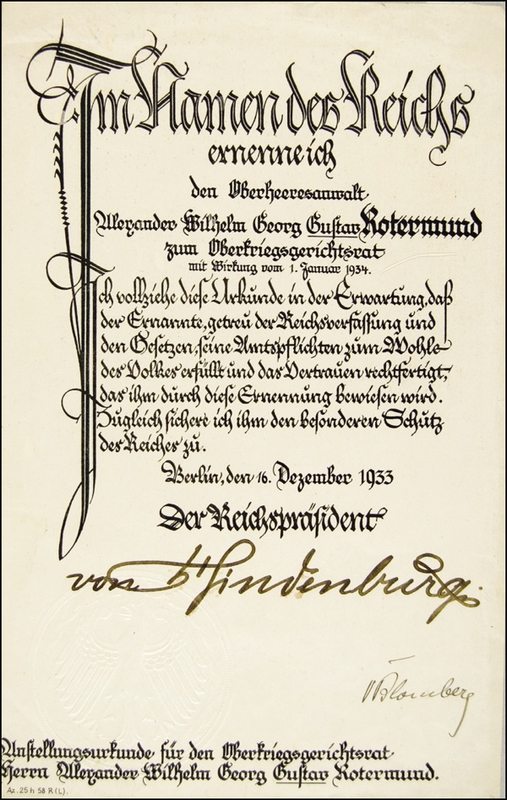 Im Namen des Reichs
ernenne ich
den Oberheeresanwalt
Alexander Wilhelm Georg Gustav Rotermund
zum Oberkriegsgerichtsrat
mit Wirkung vom 1. Januar 1934.
Ich vollziehe diese Urkunde in der Erwartung, daß
der Ernannte, getreu der Reichsverfassung und
den Gesetzen, seine Amtspflichten zum Wohle
des Volkes erfüllt und das Vertrauen rechtfertigt,
das ihm durch diese Ernennung bewiesen wird.
Zugleich sichere ich ihm den besonderen Schutz
des Reiches zu.
Berlin, den 16. Dezember 1933
Der Reichspräsident
von Hindenburg
v Blomberg
Anstellungsurkunde für den Oberkriegsgerichtsrat
Herrn Alexander Wilhelm Georg Gustav Rotermund.
Az. 25 h 58 R (L).